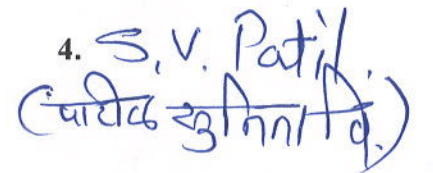 4. S.V. Patil.
(पाटील सुनिता वि.)